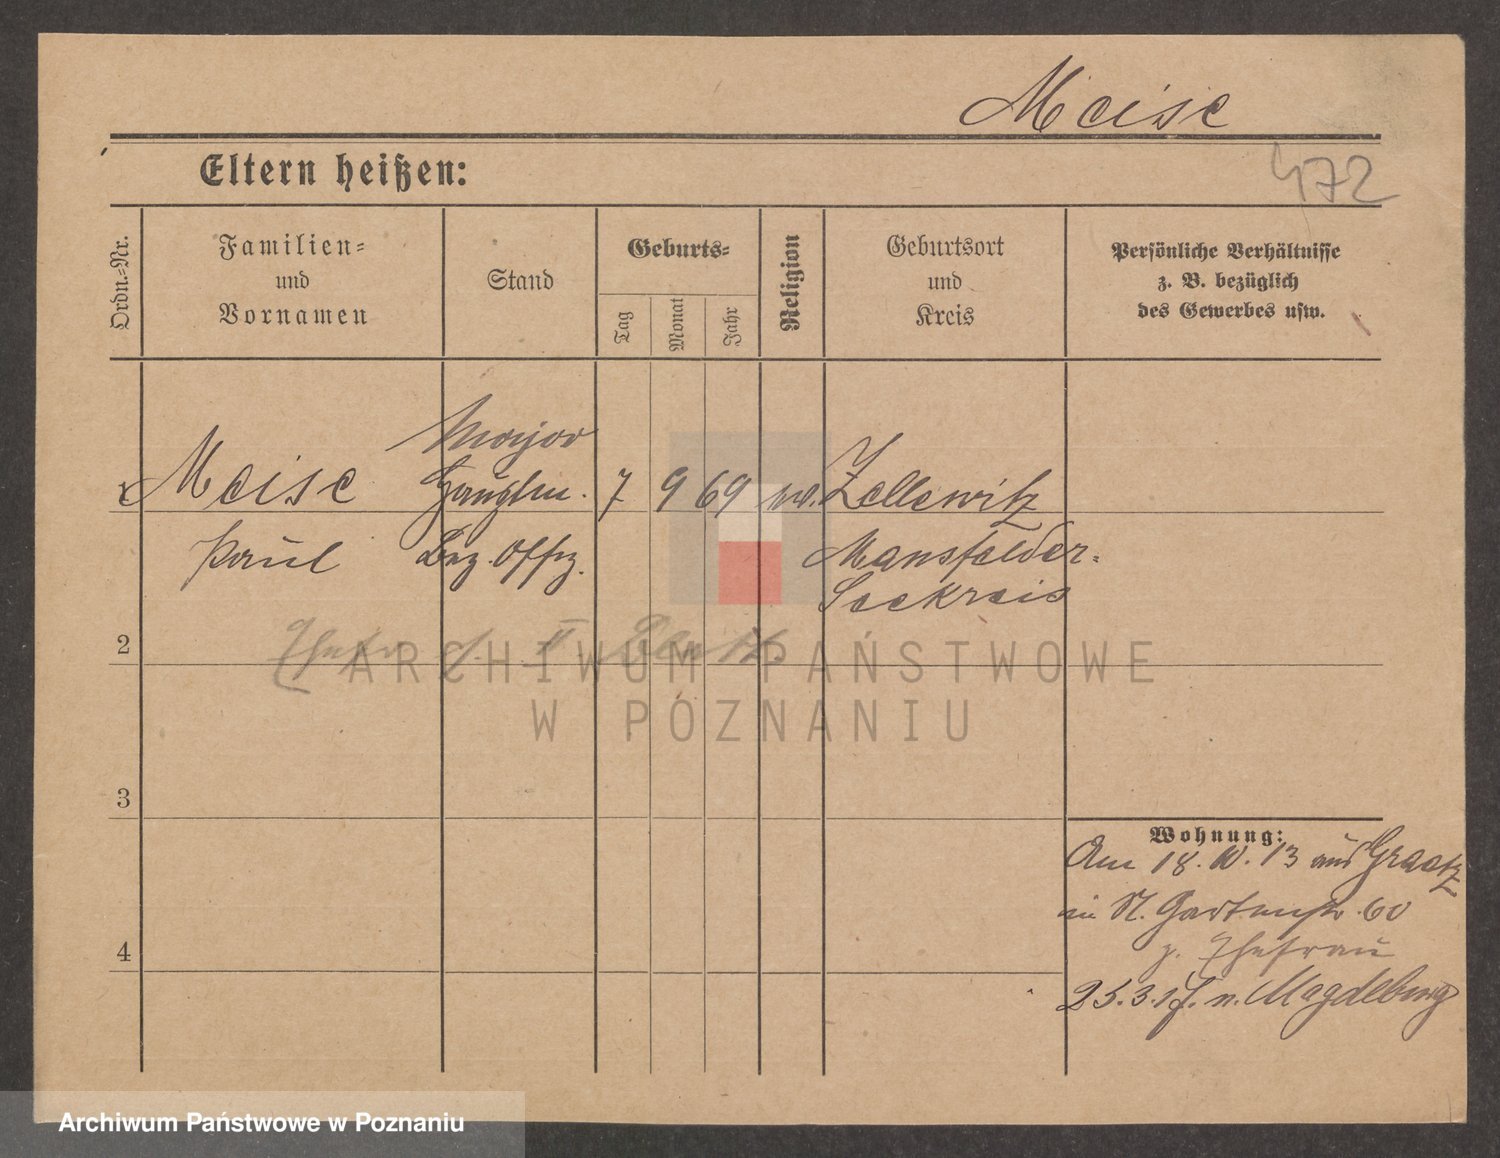 Meise
472
Eltern heißen:
Ordn.-Nr.
Familien-
und
Vornamen
Stand
Geburts-
Tag
Monat
Jahr
Religion
Geburtsort
und
Kreis
Persönliche Verhältnisse
z. B. bezüglich
des Gewerbes usw.
Major
Meise
Hauptm.
7
9
69
Zellewitz
Paul
Bez. Offz.
Mansfelder-
Seekreis
2
Ehefr. s. II
ARCHIWUM PAŃSTWOWE
W POZNANIU
3
Wohnung:
Am 18. 10. 13 aus Graetz
in St. Gartenstr. 60
z. Ehefrau
4
25.3.17. n. Magdeburg
Archiwum Państwowe w Poznaniu